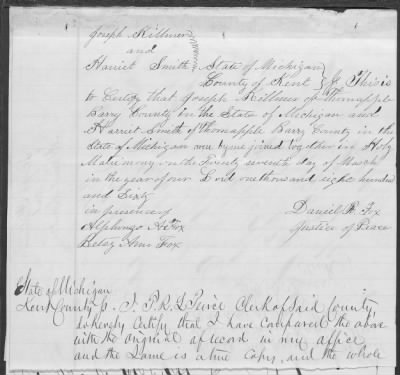 Joseph Killmer
and
Harriet Smith State of Michigan
County of Kent } ss This is
to Certify that Joseph Killmer of Thornapple
Barry County in the State of Michigan and
Harriet Smith of Thornapple Barry County in the
State of Michigan were by me joined together in Holy
Matrimony on the Twenty seventh day of March
in the year of our Lord one thousand and eight hundred
and Sixty
in presence of
Daniel R. Fox
Alphonzo A Fox
Justice of Peace
Betsy Ann Fox
State of Michigan
Kent County ss. I. P. R. L. Peirce Clerk of Said County,
do hereby Certify that I have Compared the above
with the original of record in my office
and the Same is a true Copy, and the whole